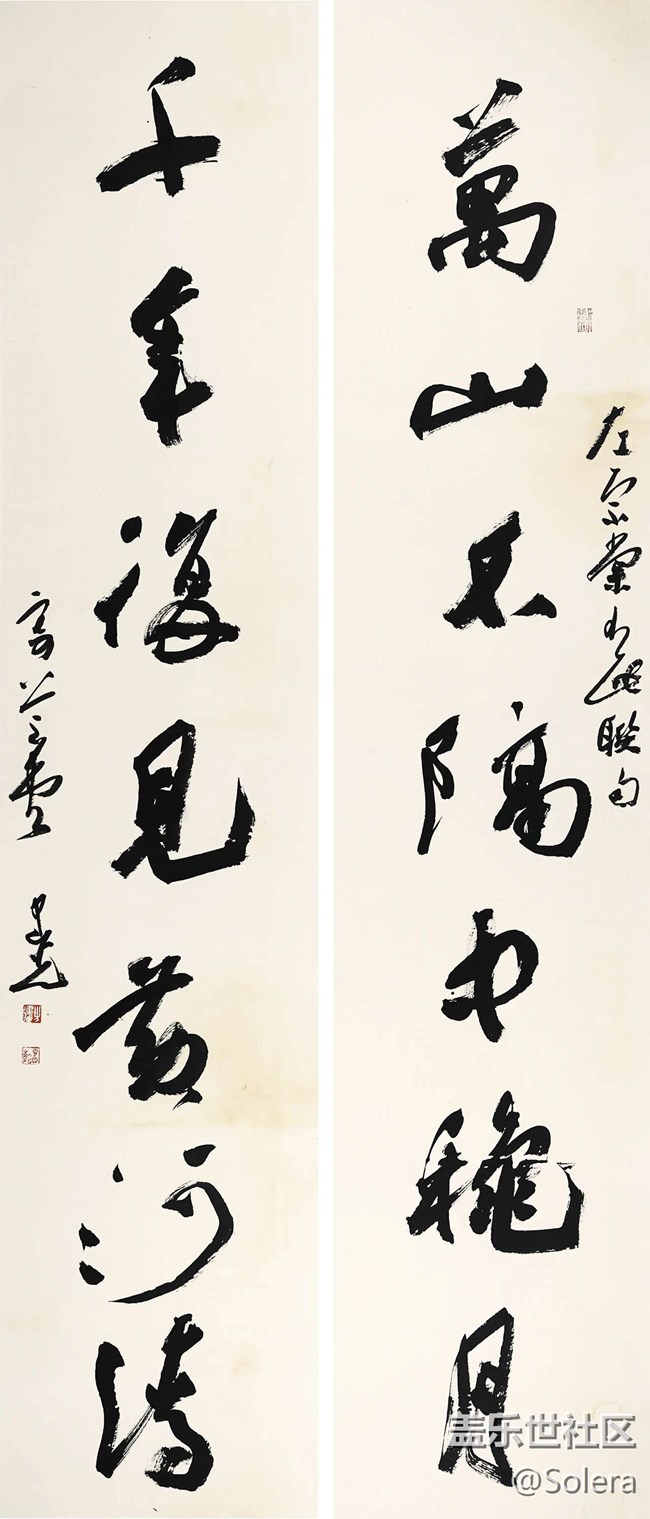 萬山不隔中穐月
左宗棠 聯句
千年復見黄河清
盖乐世社区
@Solera